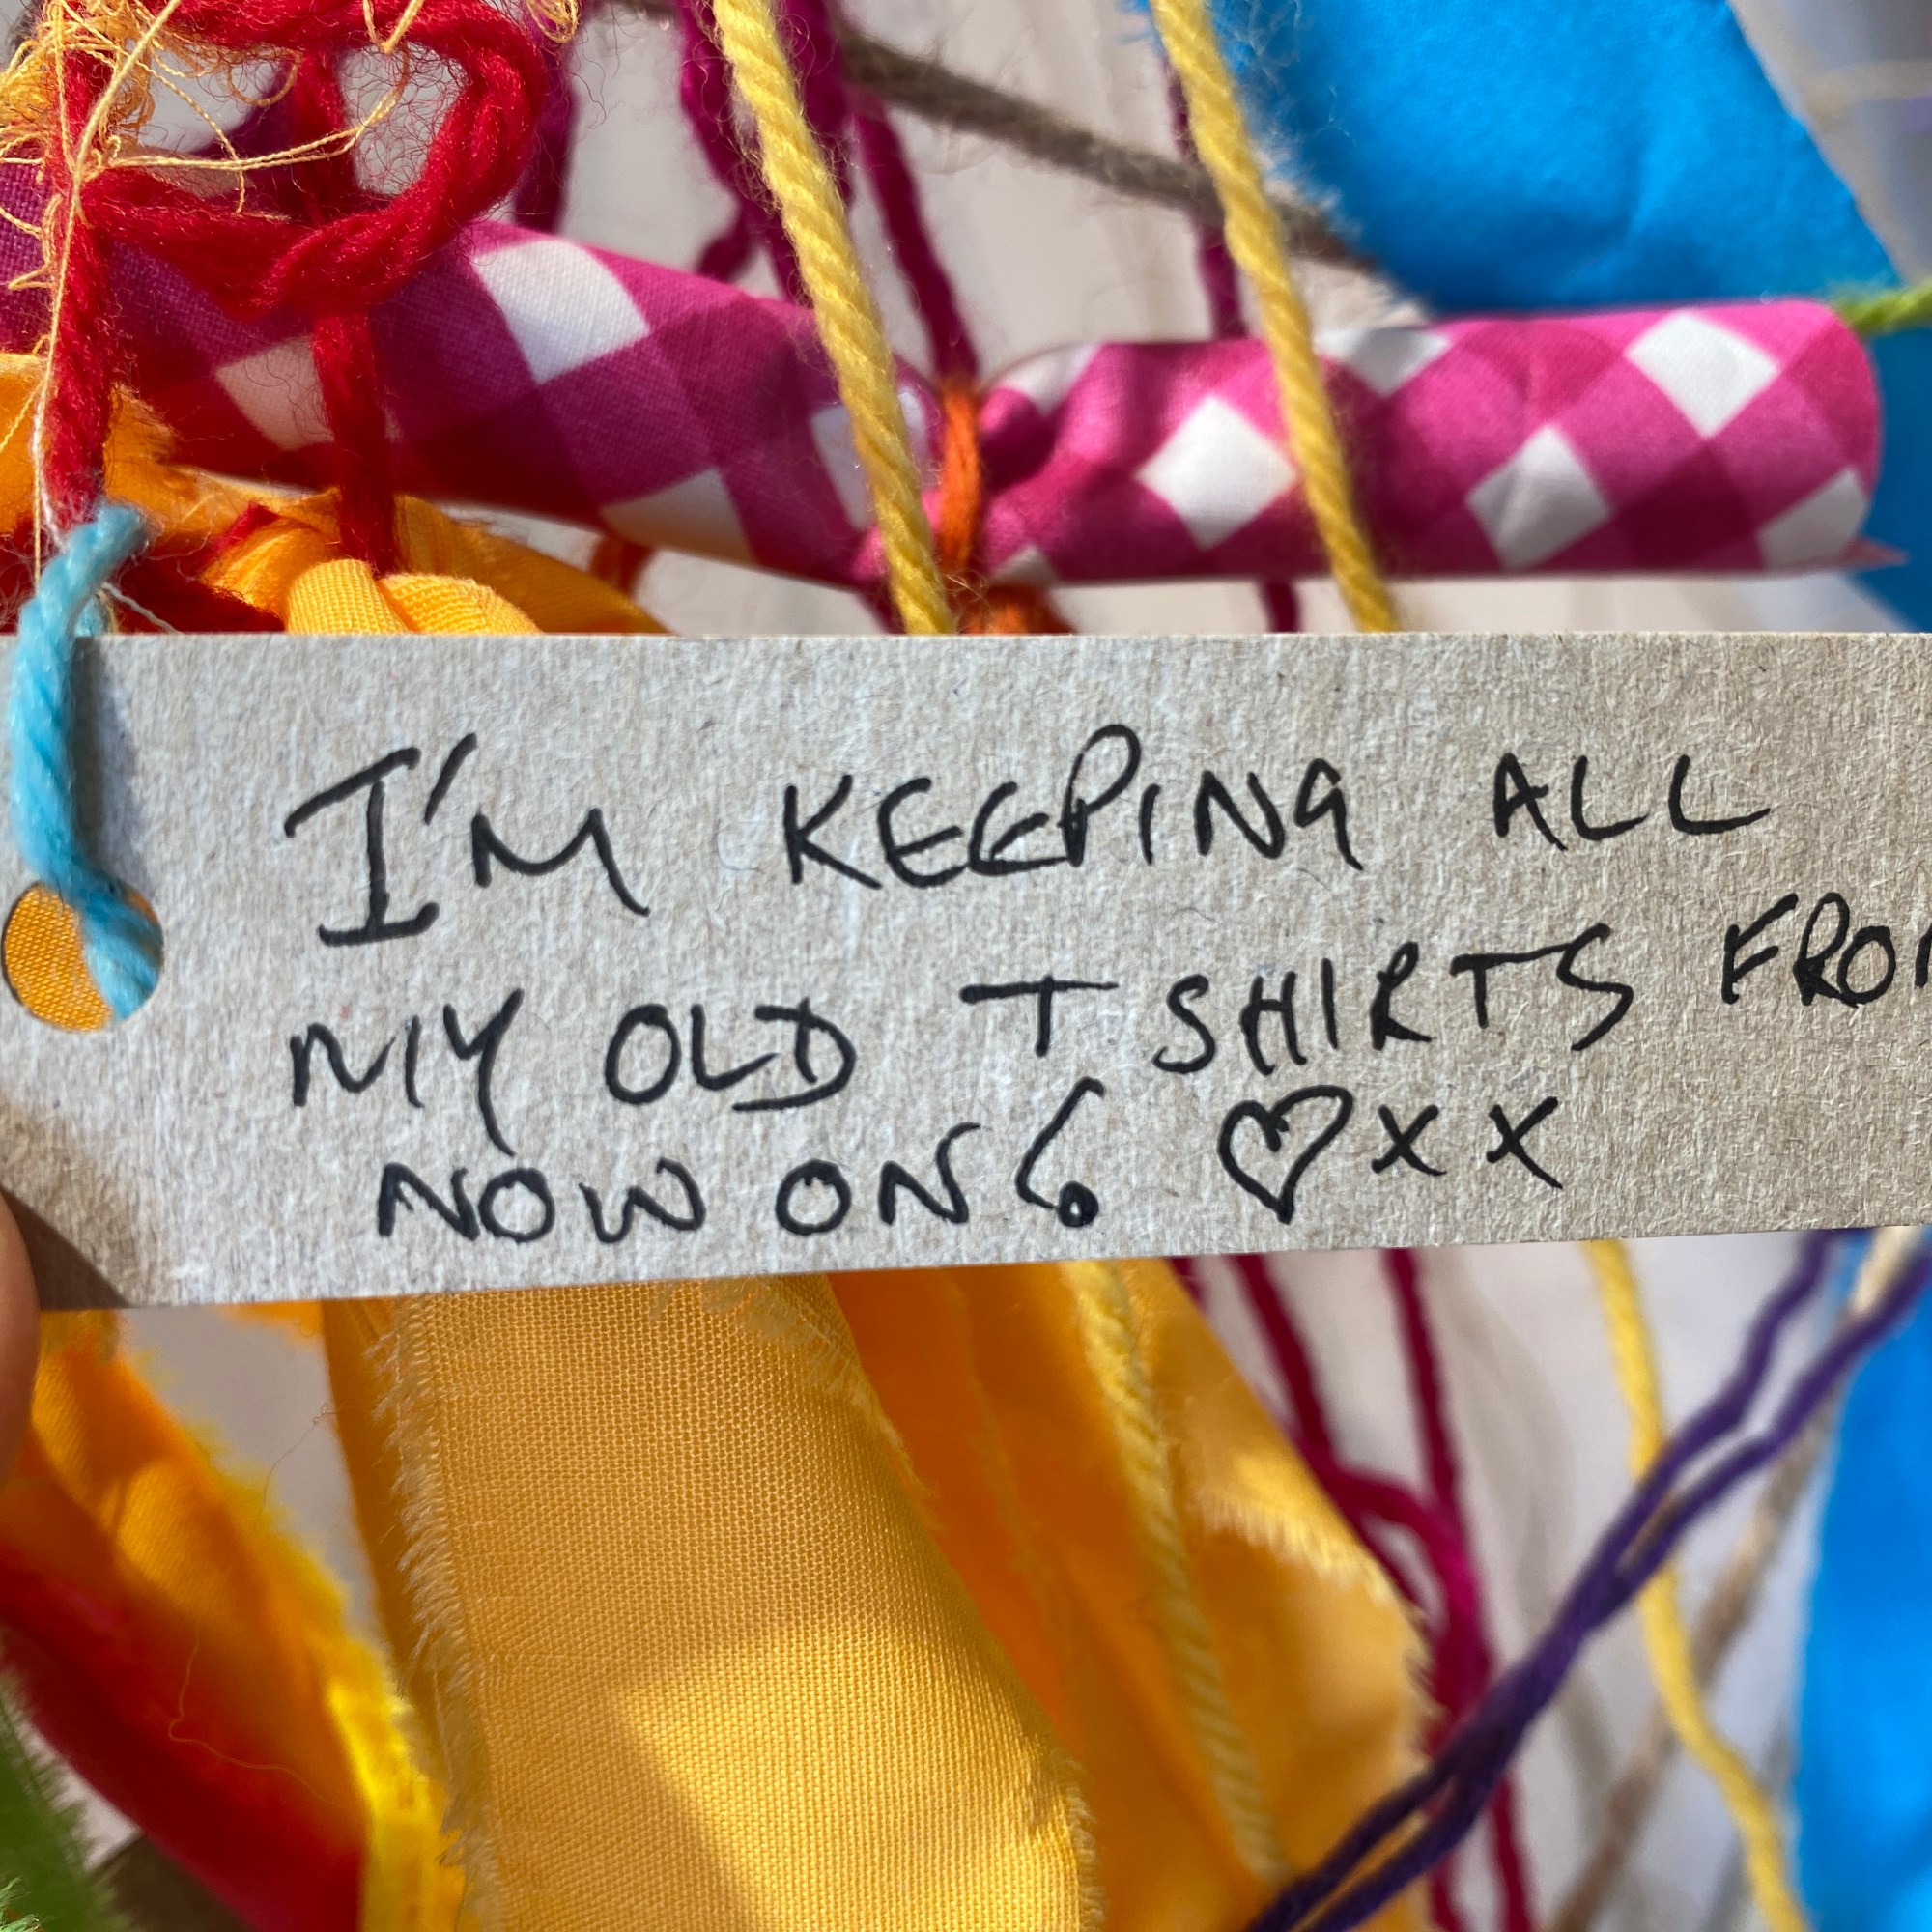 I'M KEEPING ALL
MY OLD T SHIRTS FROM
NOW ON! ♡ x x